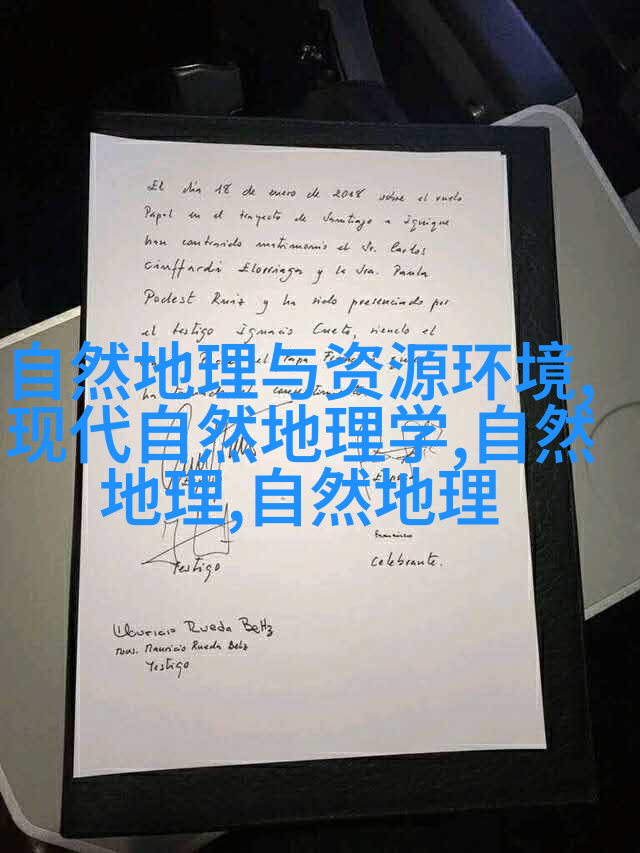 El día 18 de enero de 2018 sobre el vuelo
Papal en el trayecto de Santiago a Iquique
han contraido matrimonio el Sr. Carlos
Ciuffardi Elorriaga y la Sra. Paula
Podest Ruiz y ha sido presenciado por
el testigo Ignacio Cueto, siendo el
el Papa
自然地理与资源环境,
ha el consentimiento
现代自然地理学,自然
地理,自然地理
Francisco
Testigo
Celebrante.
Mauricio Rueda Beltz
Mons. Mauricio Rueda Beltz
Testigo